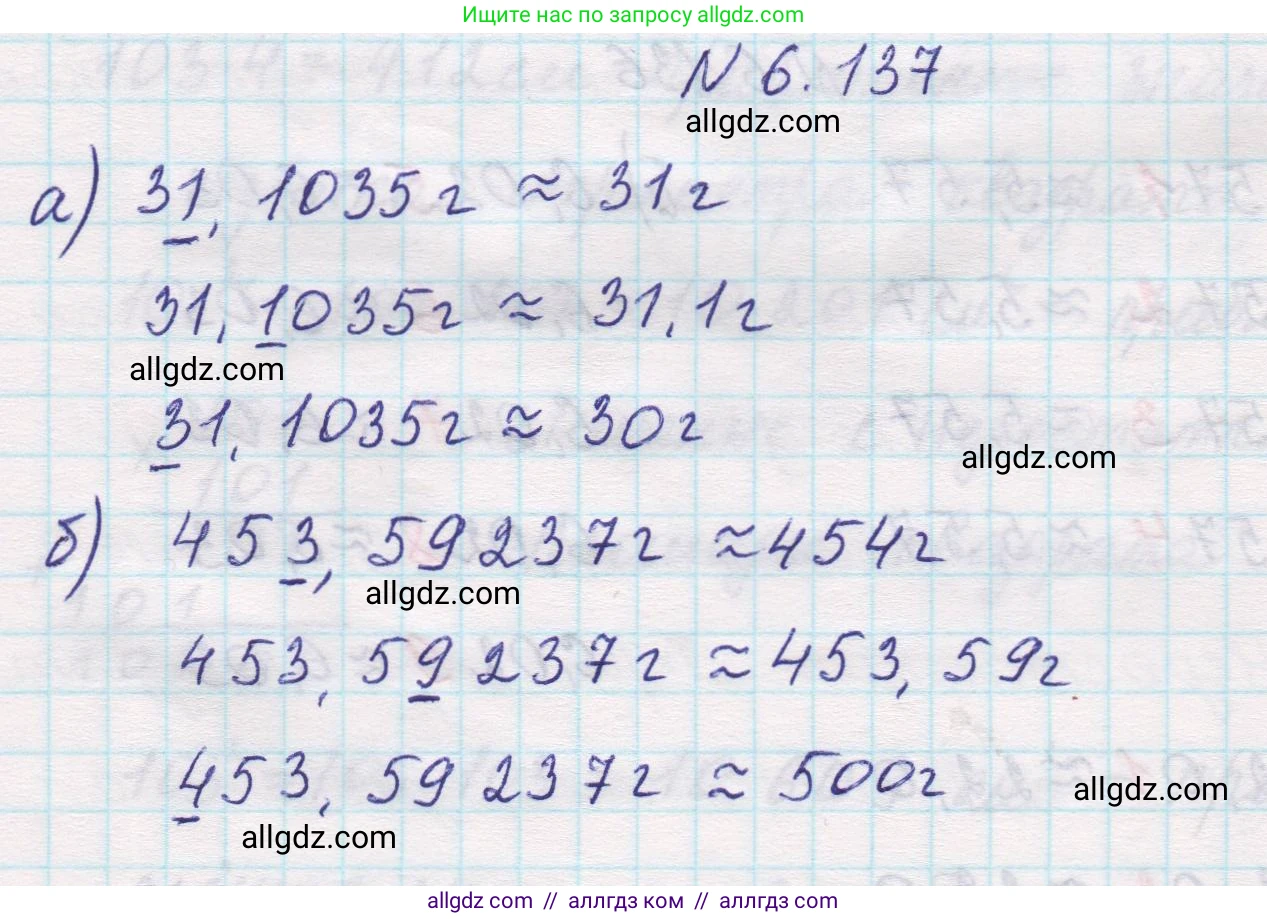 Ищите нас по запросу allgdz.com
N 6.137
allgdz.com
а) 31,1035г ≈ 31г
31,1035г ≈ 31,1г
allgdz.com
31,1035г ≈ 30г
allgdz.com
б) 453,59237г ≈ 454г
allgdz.com
453,59237г ≈ 453,59г
453,59237г ≈ 500г
allgdz.com
allgdz.com
allgdz.com // аллгдз ком // аллгдз.com